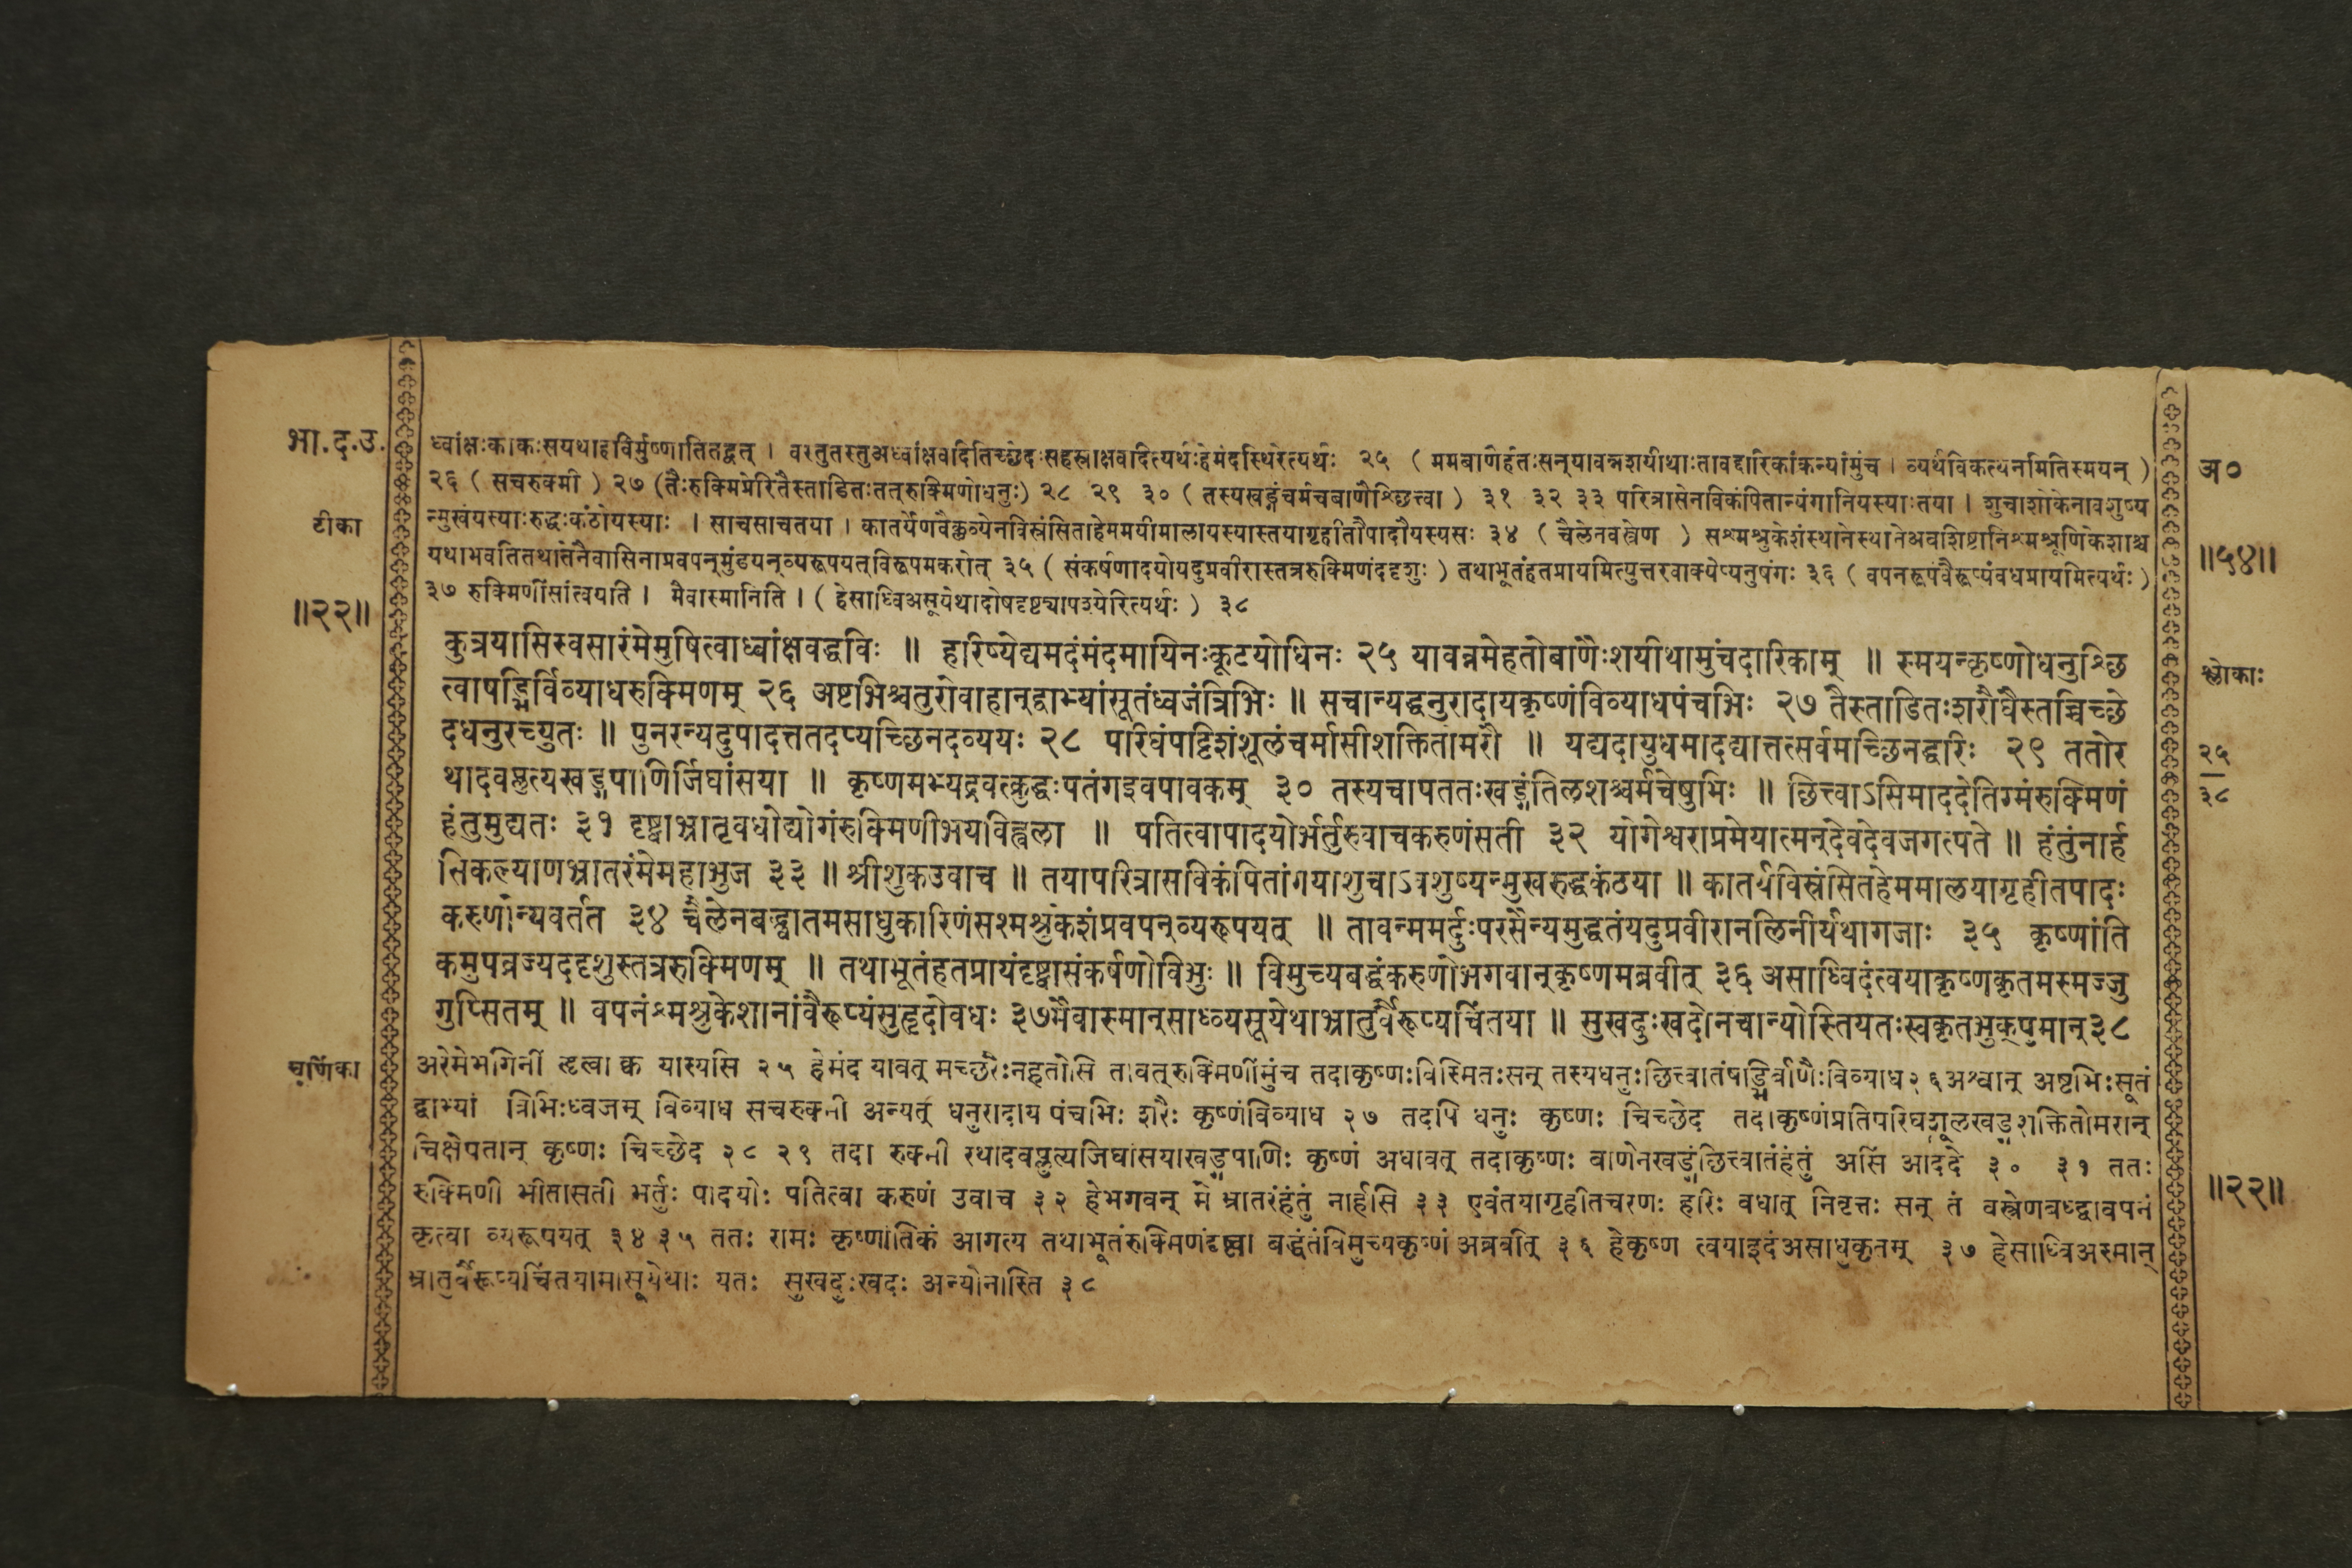 भा.द.उ. ध्वांक्षःकाकःसयथाहविर्मुष्णातितद्वत् । वस्तुतस्तुअध्वांक्षवदितिच्छेदःसहस्राक्षवदित्यर्थःहेमंदस्थिरेत्यर्थः २५ ( ममबाणैर्हतःसन्यावन्नशयीथाःतावद्दारिकांकन्यांमुंच । व्यर्थविकत्थनमितिस्मयन् ) अ०
२६ ( सचरुक्मी ) २७ (तैःरुक्मिप्रेरितैस्ताडितःतत्रुक्मिणोधनुः) २८ २९ ३० ( तस्यखङ्गंचर्मचबाणैश्छित्त्वा ) ३१ ३२ ३३ परित्रासेनविकंपितान्यंगानियस्याःतया । शुचाशोकेनावशुष्य
टीका न्मुखंयस्याःरुद्धःकंठोयस्याः । साचसाचतया । कातर्येणवैक्लव्येनविस्रंसिताहेममयीमालायस्यास्तयागृहीतौपादौयस्यसः ३४ ( चैलेनवस्त्रेण ) सश्मश्रुकेशंस्थानेस्थानेअवशिष्टानिश्मश्रूणिकेशाश्च
यथाभवतितथातेनैवासिनाप्रवपन्मुंडयन्व्यरूपयत्विरूपमकरोत् ३५ ( संकर्षणादयोयदुप्रवीरास्तत्ररुक्मिणंददृशुः ) तथाभूतंहतप्रायमित्युत्तरवाक्येप्यनुषंगः ३६ ( वपनरूपंवैरूप्यंवधप्रायमित्यर्थः ) ॥५४॥
॥२२॥ ३७ रुक्मिणींसांत्वयति । मैवास्मानिति । ( हेसाध्विअसूयेथादोषदृष्ट्यापश्येरित्यर्थः ) ३८
कुत्रयासिस्वसारंमेमुषित्वाध्वांक्षवद्धविः ॥ हरिष्येद्यमदंमंदमायिनःकूटयोधिनः २५ यावन्नमेहतोबाणैःशयीथामुंचदारिकाम् ॥ स्मयन्कृष्णोधनुश्छि श्लोकाः
त्वाषड्भिर्विव्याधरुक्मिणम् २६ अष्टभिश्चतुरोवाहान्द्वाभ्यांसूतंध्वजंत्रिभिः ॥ सचान्यद्धनुरादायकृष्णंविव्याधपंचभिः २७ तैस्ताडितःशरौघैस्तच्चिच्छे
दधनुरच्युतः ॥ पुनरन्यदुपादत्ततदप्यच्छिनदव्ययः २८ परिघंपट्टिशंशूलंचर्मासीशक्तितोमरौ ॥ यद्यदायुधमादद्यात्तत्सर्वमच्छिनद्धरिः २९ ततोर २५
थादवप्लुत्यखड्गपाणिर्जिघांसया ॥ कृष्णमभ्यद्रवत्क्रुद्धःपतंगइवपावकम् ३० तस्यचापततःखड्गंतिलशश्चर्मचेषुभिः ॥ छित्त्वाऽसिमाददेतिग्मंरुक्मिणं ३८
हंतुमुद्यतः ३१ दृष्ट्वाभ्रातृवधोद्योगंरुक्मिणीभयविह्वला ॥ पतित्वापादयोर्भर्तुरुवाचकरुणंसती ३२ योगेश्वराप्रमेयात्मन्देवदेवजगत्पते ॥ हंतुंनार्ह
सिकल्याणभ्रातरंमेमहाभुज ३३ ॥ श्रीशुकउवाच ॥ तयापरित्रासविकंपितांगयाशुचाऽवशुष्यन्मुखरुद्धकंठया ॥ कातर्यविस्रंसितहेममालयागृहीतपादः
करुणोन्यवर्तत ३४ चैलेनबद्ध्वातमसाधुकारिणंसश्मश्रुकेशंप्रवपन्व्यरूपयत् ॥ तावन्ममर्दुःपरसैन्यमुद्धतंयदुप्रवीरानलिनीर्यथागजाः ३५ कृष्णांति
कमुपव्रज्यददृशुस्तत्ररुक्मिणम् ॥ तथाभूतंहतप्रायंदृष्ट्वासंकर्षणोविभुः ॥ विमुच्यबद्धंकरुणोभगवान्कृष्णमब्रवीत् ३६ असाध्विदंत्वयाकृष्णकृतमस्मज्जु
गुप्सितम् ॥ वपनंश्मश्रुकेशानांवैरूप्यंसुहृदोवधः ३७मैवास्मान्साध्व्यसूयेथाभ्रातुर्वैरूप्यचिंतया ॥ सुखदुःखदोनचान्योस्तियतःस्वकृतभुक्पुमान्३८
चूर्णिका अरेमेभगिनीं हृत्वा क्व यास्यसि २५ हेमंद यावत् मच्छरैःनहतोसि तावत्रुक्मिणींमुंच तदाकृष्णःविस्मितःसन् तस्यधनुःछित्त्वातंषड्भिर्बाणैःविव्याध२६अश्वान् अष्टभिःसूतं
द्वाभ्यां त्रिभिःध्वजम् विव्याध सचरुक्मी अन्यत् धनुरादाय पंचभिः शरैः कृष्णंविव्याध २७ तदपि धनुः कृष्णः चिच्छेद तदाकृष्णंप्रतिपरिघशूलखड्गशक्तितोमरान्
चिक्षेपतान् कृष्णः चिच्छेद २८ २९ तदा रुक्मी रथादवप्लुत्यजिघांसयाखड्गपाणिः कृष्णं अधावत् तदाकृष्णः बाणेनखड्गंछित्त्वातंहंतुं असिं आददे ३० ३१ ततः
रुक्मिणी भीतासती भर्तुः पादयोः पतित्वा करुणं उवाच ३२ हेभगवन् मे भ्रातरंहंतुं नार्हसि ३३ एवंतयागृहीतचरणः हरिः वधात् निवृत्तः सन् तं वस्त्रेणबध्द्वावपनं ॥२२॥
कृत्वा व्यरूपयत् ३४ ३५ ततः रामः कृष्णांतिकं आगत्य तथाभूतंरुक्मिणंदृष्ट्वा बद्धंतंविमुच्यकृष्णं अब्रवीत् ३६ हेकृष्ण त्वयाइदंअसाधुकृतम् ३७ हेसाध्विअस्मान्
भ्रातुर्वैरूप्यचिंतयामासूयेथाः यतः सुखदुःखदः अन्योनास्ति ३८